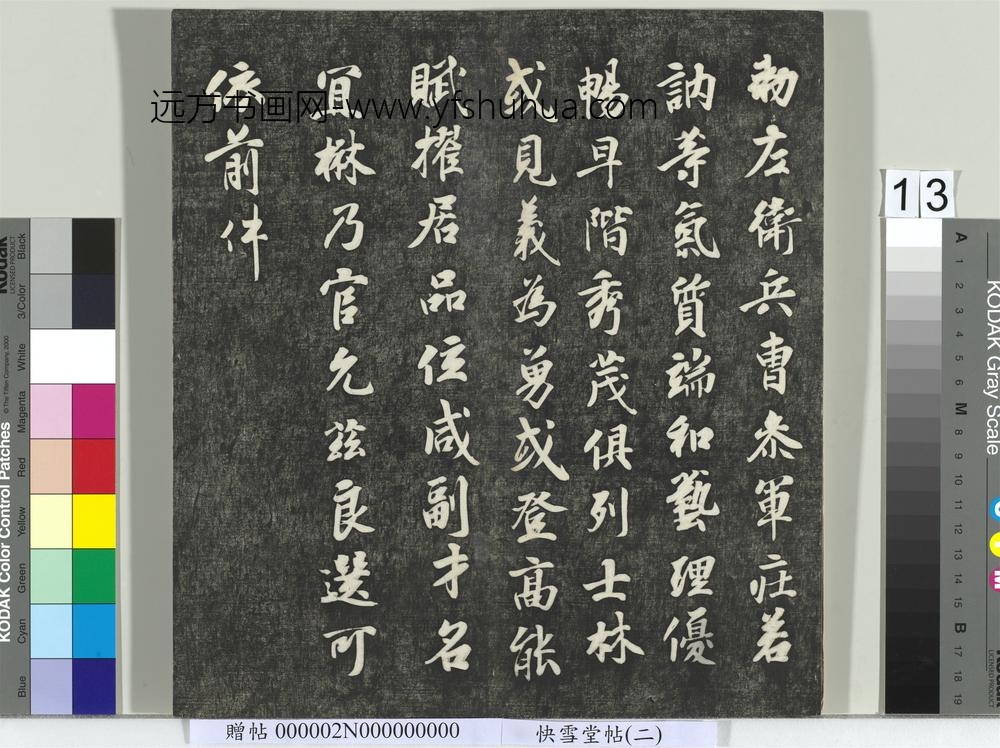 勑左衛兵曹叅軍庄若
訥等氣質端和藝理優
暢早階秀茂俱列士林
或見義為勇或登高能
賦擢居品位咸副才名
宜楙乃官允茲良選可
依前件
远方书画网-www.yfshuhua.com
13
赠帖 000002N000000000
快雪堂帖(二)
KODAK Color Control Patches
© The Tiffen Company, 2000
Kodak
LICENSED PRODUCT
Black
3/Color
White
Magenta
Red
Yellow
Green
Cyan
Blue
KODAK Gray Scale
A 1 2 3 4 5 6 M 8 9 10 11 12 13 14 15 B 17 18 19
C
Y
M